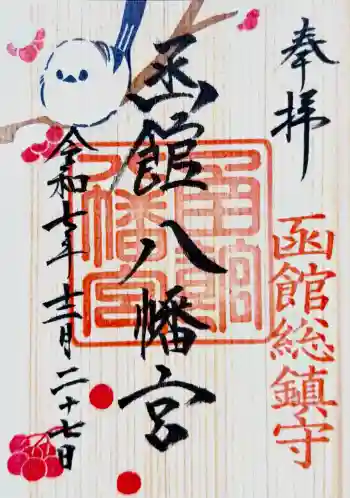 奉拝
函館総鎮守
函館八幡宮
令和七年 十二月 二十七日
函館八幡宮